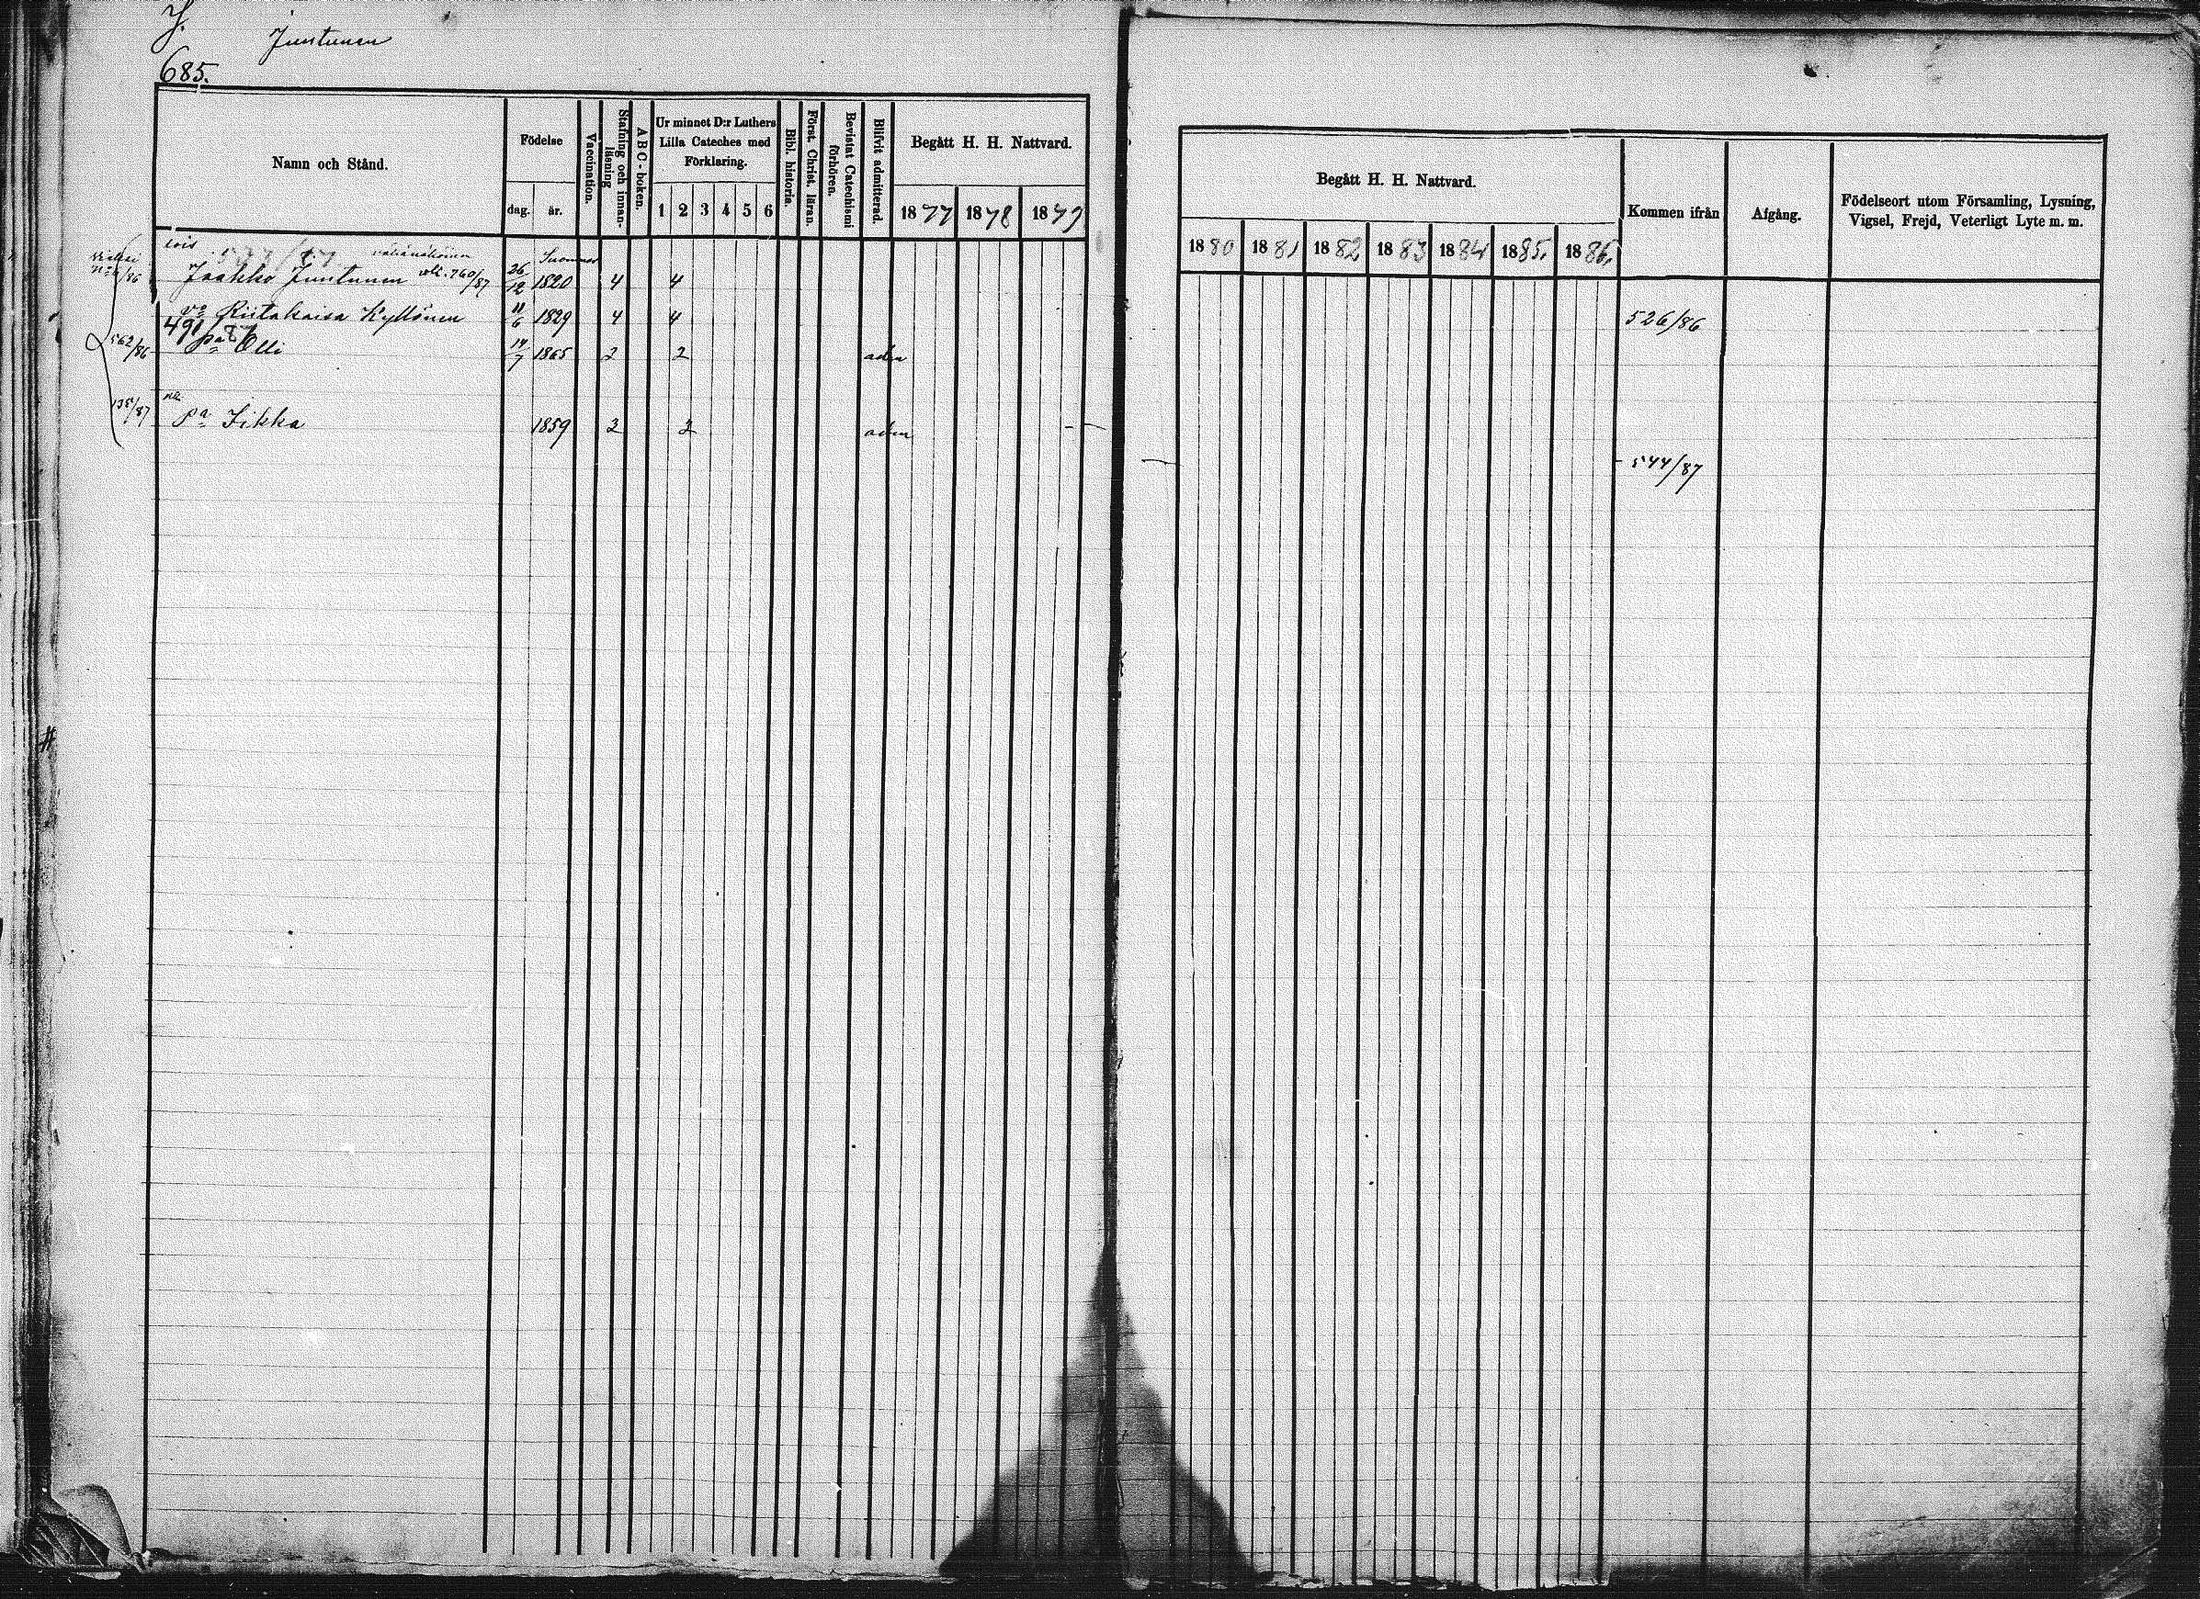 J.
Juntunen
685.
Namn och Stånd.
Födelse
dag.
år.
Vaccination.
Stafning och innanläsning
ABC-boken.
Ur minnet D:r Luthers
Lilla Cateches med
Förklaring.
1 2 3 4 5 6
Bibl. historia.
Först. Christ. läran.
Bevistat Catechismi förhören.
Blifvit admitterad.
Begått H. H. Nattvard.
1877 1878 1879
lois
Jaakko Juntunen 760/87 26/12 1820 4 4
va Riitakaisa Kyllönen 11/6 1829 4 4
562/86 pa Olli 14/7 1865 2 2 adm
138/87 pa Jikka 1859 2 2 adm
Begått H. H. Nattvard.
1880 1881 1882 1883 1884 1885. 1886.
Kommen ifrån
Afgång.
Födelseort utom Församling, Lysning,
Vigsel, Frejd, Veterligt Lyte m. m.
526/86
544/87